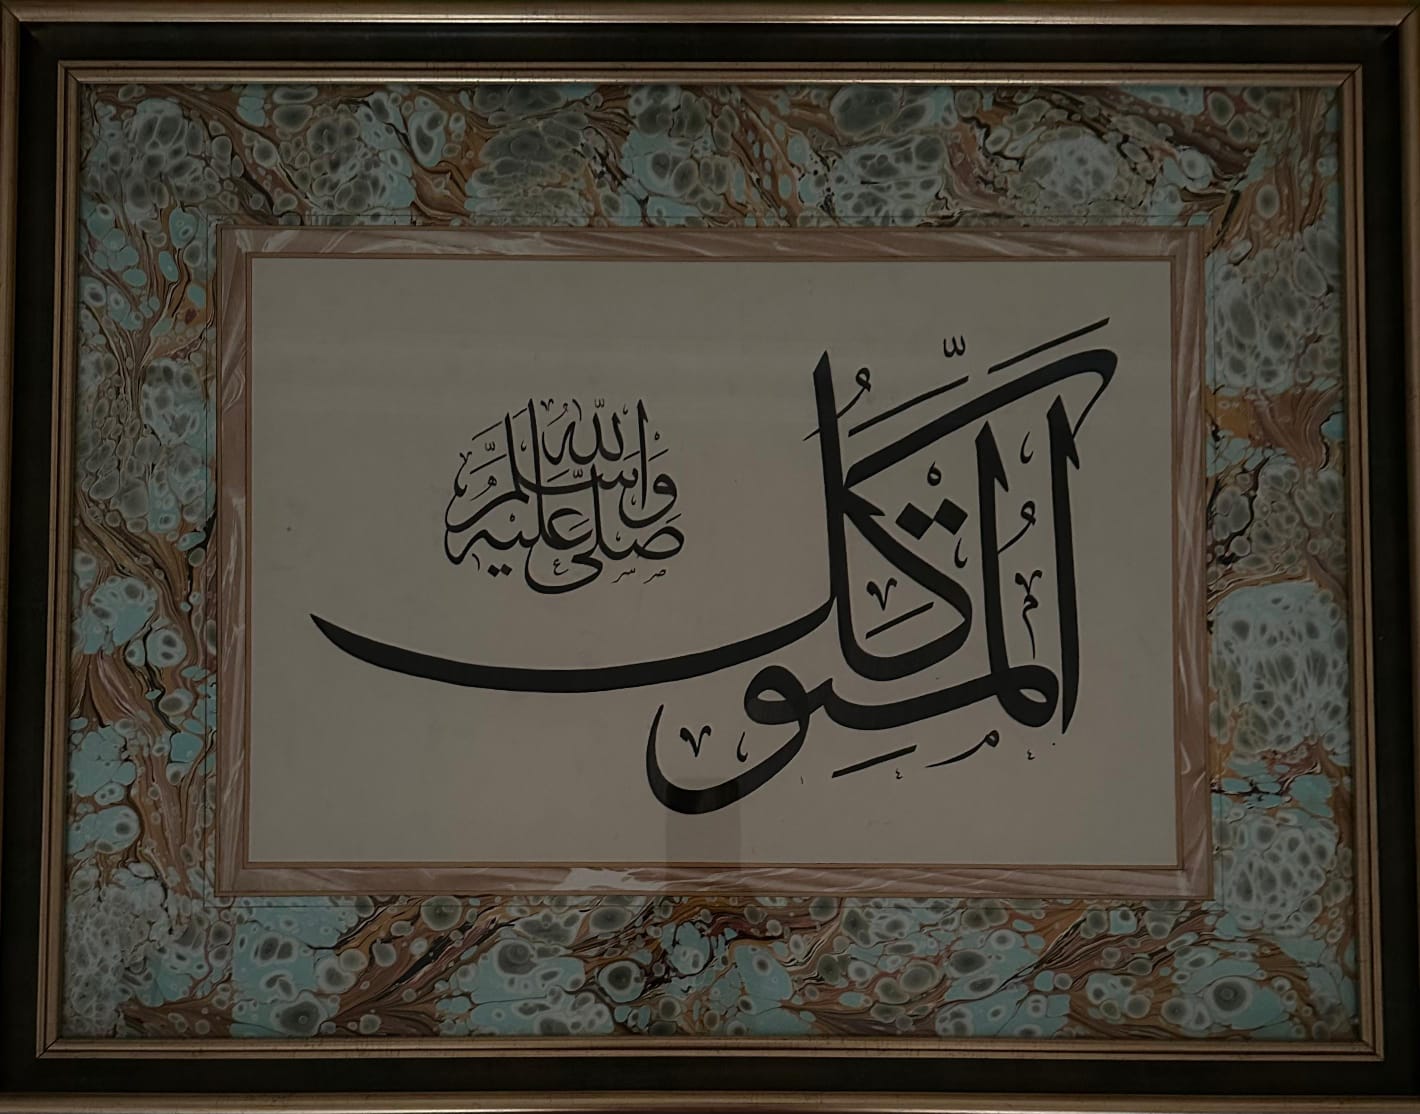 المُتَوَكِّلُ
صلى الله عليه وسلم